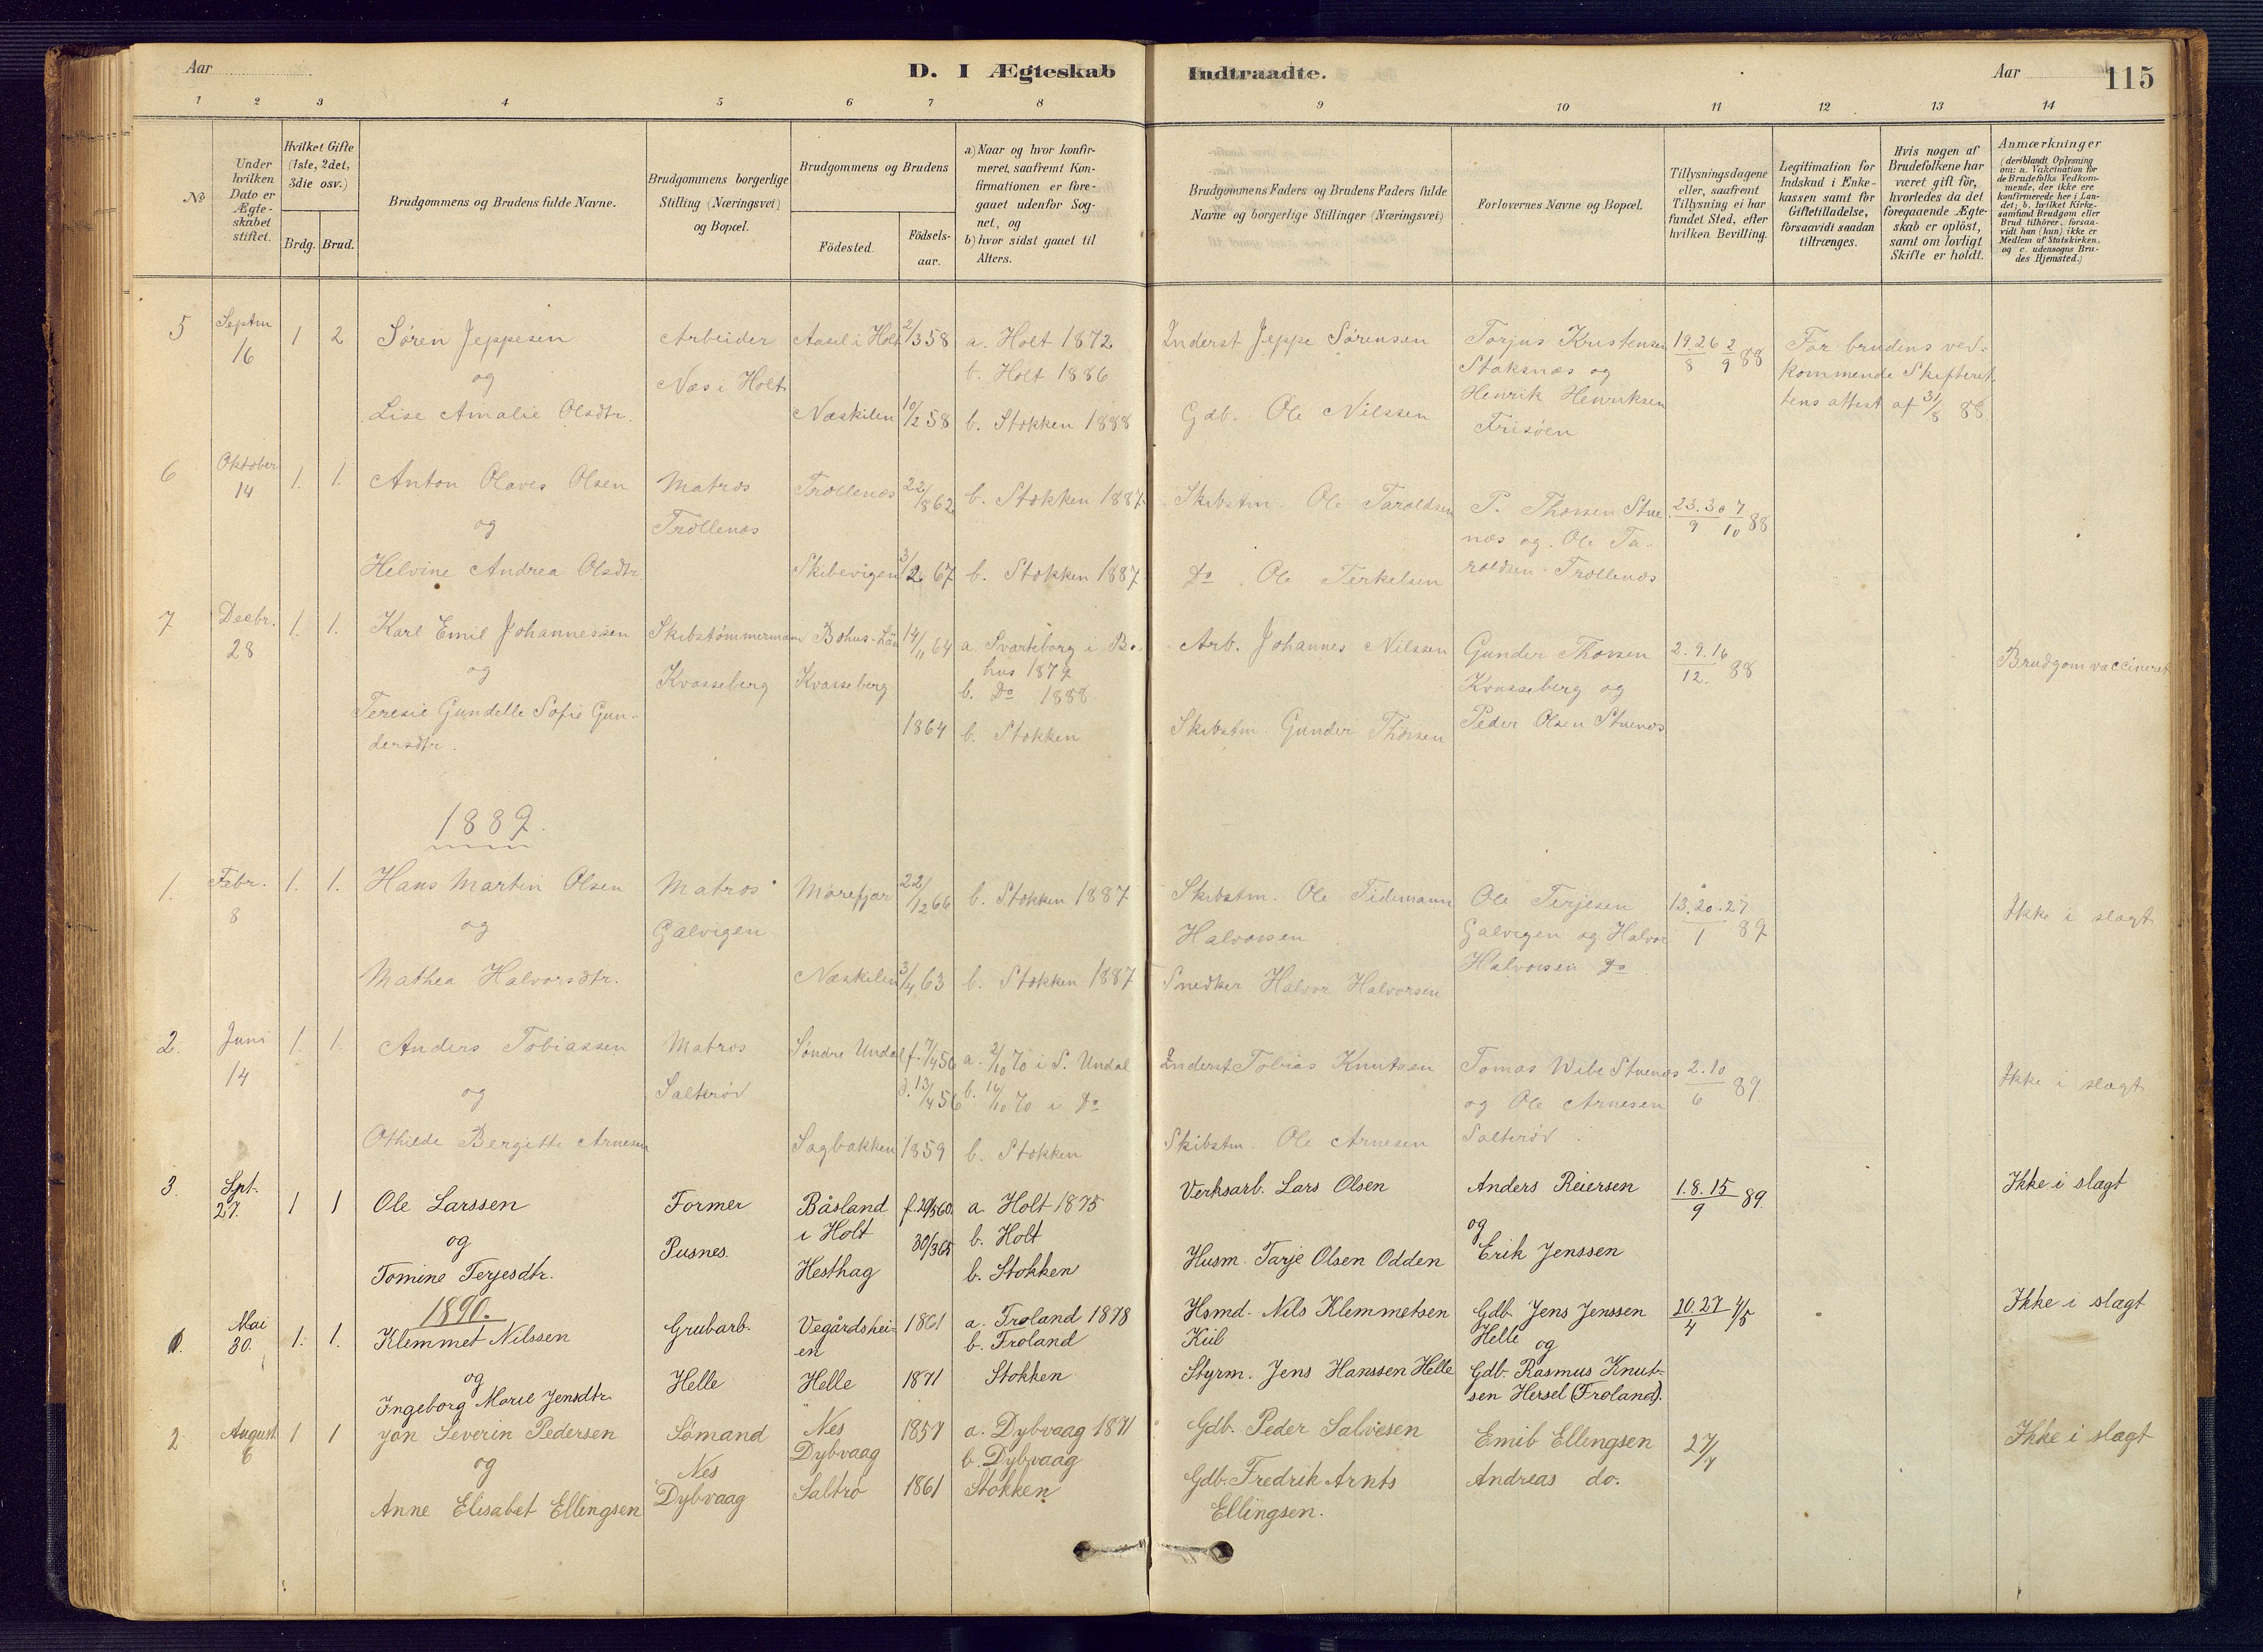 Aar
D. I Ægteskab Indtraadte.
Aar 115
1 2 3 4 5 6 7 8 9 10 11 12 13 14
No
Under hvilken Dato er Ægteskabet stiftet.
Hvilket Gifte (1ste, 2det, 3die osv.)
Brdg. Brud.
Brudgommens og Brudens fulde Navne.
Brudgommens borgerlige Stilling (Næringsvei) og Bopæl.
Brudgommens og Brudens
Födested.
Födsels-aar.
a) Naar og hvor konfirmeret, saafremt Konfirmationen er foregaaet udenfor Sognet, og
b) hvor sidst gaaet til Alters.
Brudgommens Faders og Brudens Faders fulde Navne og borgerlige Stillinger (Næringsvei)
Forlovernes Navne og Bopæl.
Tillysningsdagene eller, saafremt Tillysning ei har fundet Sted, efter hvilken Bevilling.
Legitimation for Indskud i Enkekassen samt for Giftetilladelse, forsaavidt saadan tiltrænges.
Hvis nogen af Brudefolkene har været gift för, hvorledes da det foregaaende Ægteskab er oplöst, samt om lovligt Skifte er holdt.
Anmærkninger (deriblandt Oplysning om: a. Vakcination for de Brudefolks Vedkommende, der ikke ere konfirmerede her i Landet; b. hvilket Kirkesamfund Brudgom eller Brud tilhörer, forsaavidt han (hun) ikke er Medlem af Statskirken, og c. udensogns Brudes Hjemsted.)
5 Septm 16 1 2 Søren Jeppesen Arbeider Aasel i Holt 2/3 58 a. Holt 1872 Inderst Jeppe Sørensen Torjus Kristensen 19.26/8 2/9 88 For brudens ved-
og Næs i Holt b. Holt 1886 Staksnæs og kommende Skifteret-
Lise Amalie Olsdtr. Næskilen 10/2 58 b. Stokken 1888 Gdb. Ole Nilssen Henrik Henriksen tens attest af 31/8 88
Frisøen
6 Oktober 14 1. 1. Anton Olaves Olsen Matros Trollenæs 22/8 62 b. Stokken 1887 Skibstm. Ole Taraldsen P. Thorsen Stue- 23.30/9 7/10 88
og Trollenæs næs og Ole Ta-
Helvine Andrea Olsdtr. Skibevigen 3/2 67 b. Stokken 1887 Do. Ole Terkelsen raldsen Trollenæs
7 Decbr. 28 1. 1. Karl Emil Johannessen Skibstømmermann Bohus-Län 14/11 64 a. Svarteborg i Bo- Arb. Johannes Nilssen Gunder Thorsen 2.9.16/12. 88 Brudgom vaccineret
og Kvasseberg Kvasseberg hus 1879 Kvasseberg og
b. Do 1888
Teresie Gundelle Sofie Gun- 1864 b. Stokken Skibstm. Gunder Thorsen Peder Olsen Stuenæs
dersdtr.
1889.
1. Febr. 8 1. 1. Hans Martin Olsen Matros Mörefjær 22/12 66 b. Stokken 1887 Skibstm. Ole Tidemann Ole Terjesen 13.20.27/1 89 Ikke i slægt
og Galvigen Halvorsen Galvigen og Halvor
Mathea Halvorsdtr. Næskilen 3/4 63 b. Stokken 1887 Snedker Halvor Halvorsen Halvorsen Do
2. Juni 14 1. 1. Anders Tobiassen Matros Søndre Undal f. 7/4 56 a. 2/10 70 i S. Undal Inderst Tobias Knutsen Tomas Wibe Stuenæs 2.10/6 89 Ikke i slægt
og Salterød d. 13/4 56 b. 16/10 70 i Do og Ole Arnesen
Othilde Bergitte Arnesen Sagbakken 1859 b. Stokken Skibstm. Ole Arnesen Salterød.
3. Spt. 27. 1 1 Ole Larssen Former Båsland f. 29/5 60 a. Holt 1875 Verksarb. Lars Olsen Anders Reiersen 1.8.15/9 89. Ikke i slagt
og Pusnes. i Holt 30/3 65 b. Holt og
Tomine Terjesdtr. Hesthag b. Stokken Husm. Tarje Olsen Odden Erik Jenssen
1890.
1. Mai 30. 1. 1. Klemmet Nilssen Grubarb. Vegårdshei- 1861 a. Froland 1878 Hsmd. Nils Klemmetsen Gdb. Jens Jenssen 20.27/4 4/5 Ikke i slægt
en b. Froland Kiib Helle og
og Helle Helle 1871 Stokken Styrm. Jens Hanssen Helle Gdb. Rasmus Knut-
Ingeborg Marie Jensdtr. sen Hersel (Froland).
2 August 6 1 1 Jon Severin Pedersen Sømand Nes 1857 a. Dybvaag 1871 Gdb. Peder Salvesen Emil Ellingsen 27/7 Ikke i slagt
og Nes Dybvaag b. Dybvaag
Anne Elisabet Ellingsen Dybvaag Saltrø 1861 Stokken Gdb. Fredrik Arnts Andreas do.
Ellingsen.